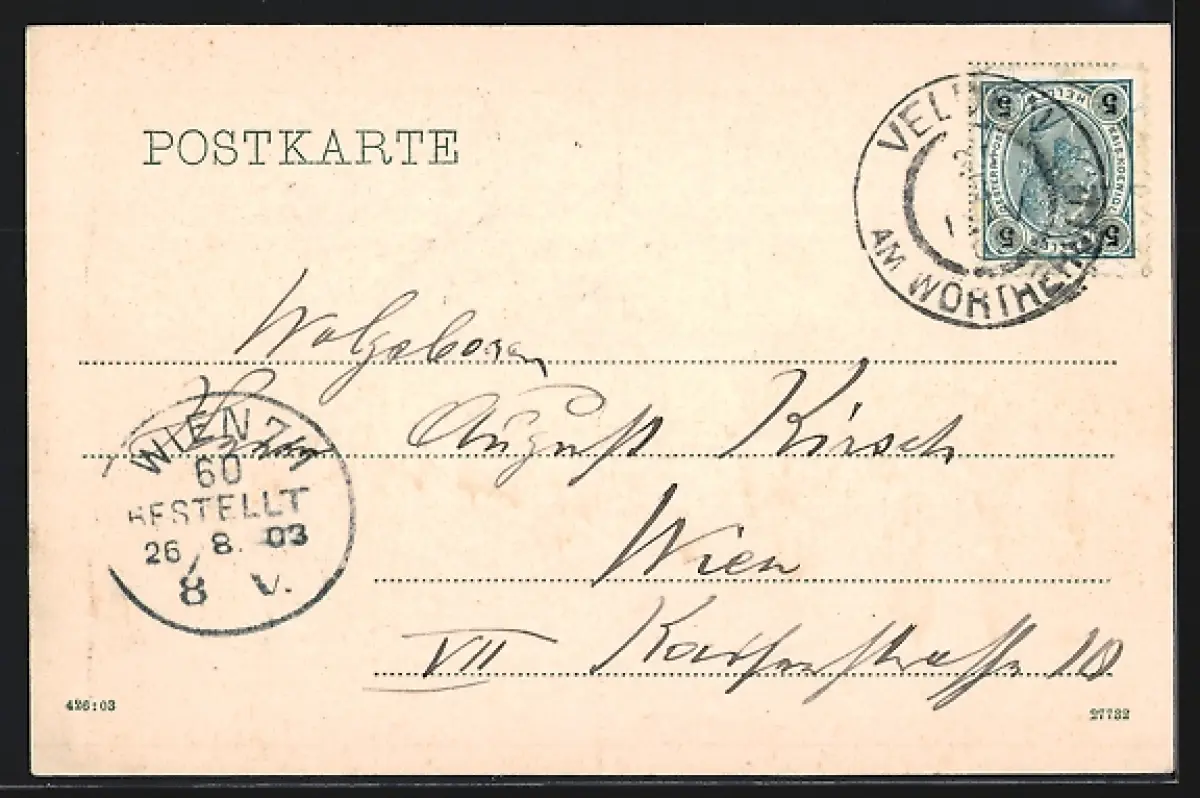 POSTKARTE
VELDEN
AM WÖRTHER
5 HELLER 5
5 5
Wolgeboren
Herrn August Kirsch
Wien
VII Kaiserstrasse 10
WIEN 7/1
60
BESTELLT
26 8. 03
8 V.
426:03
27732